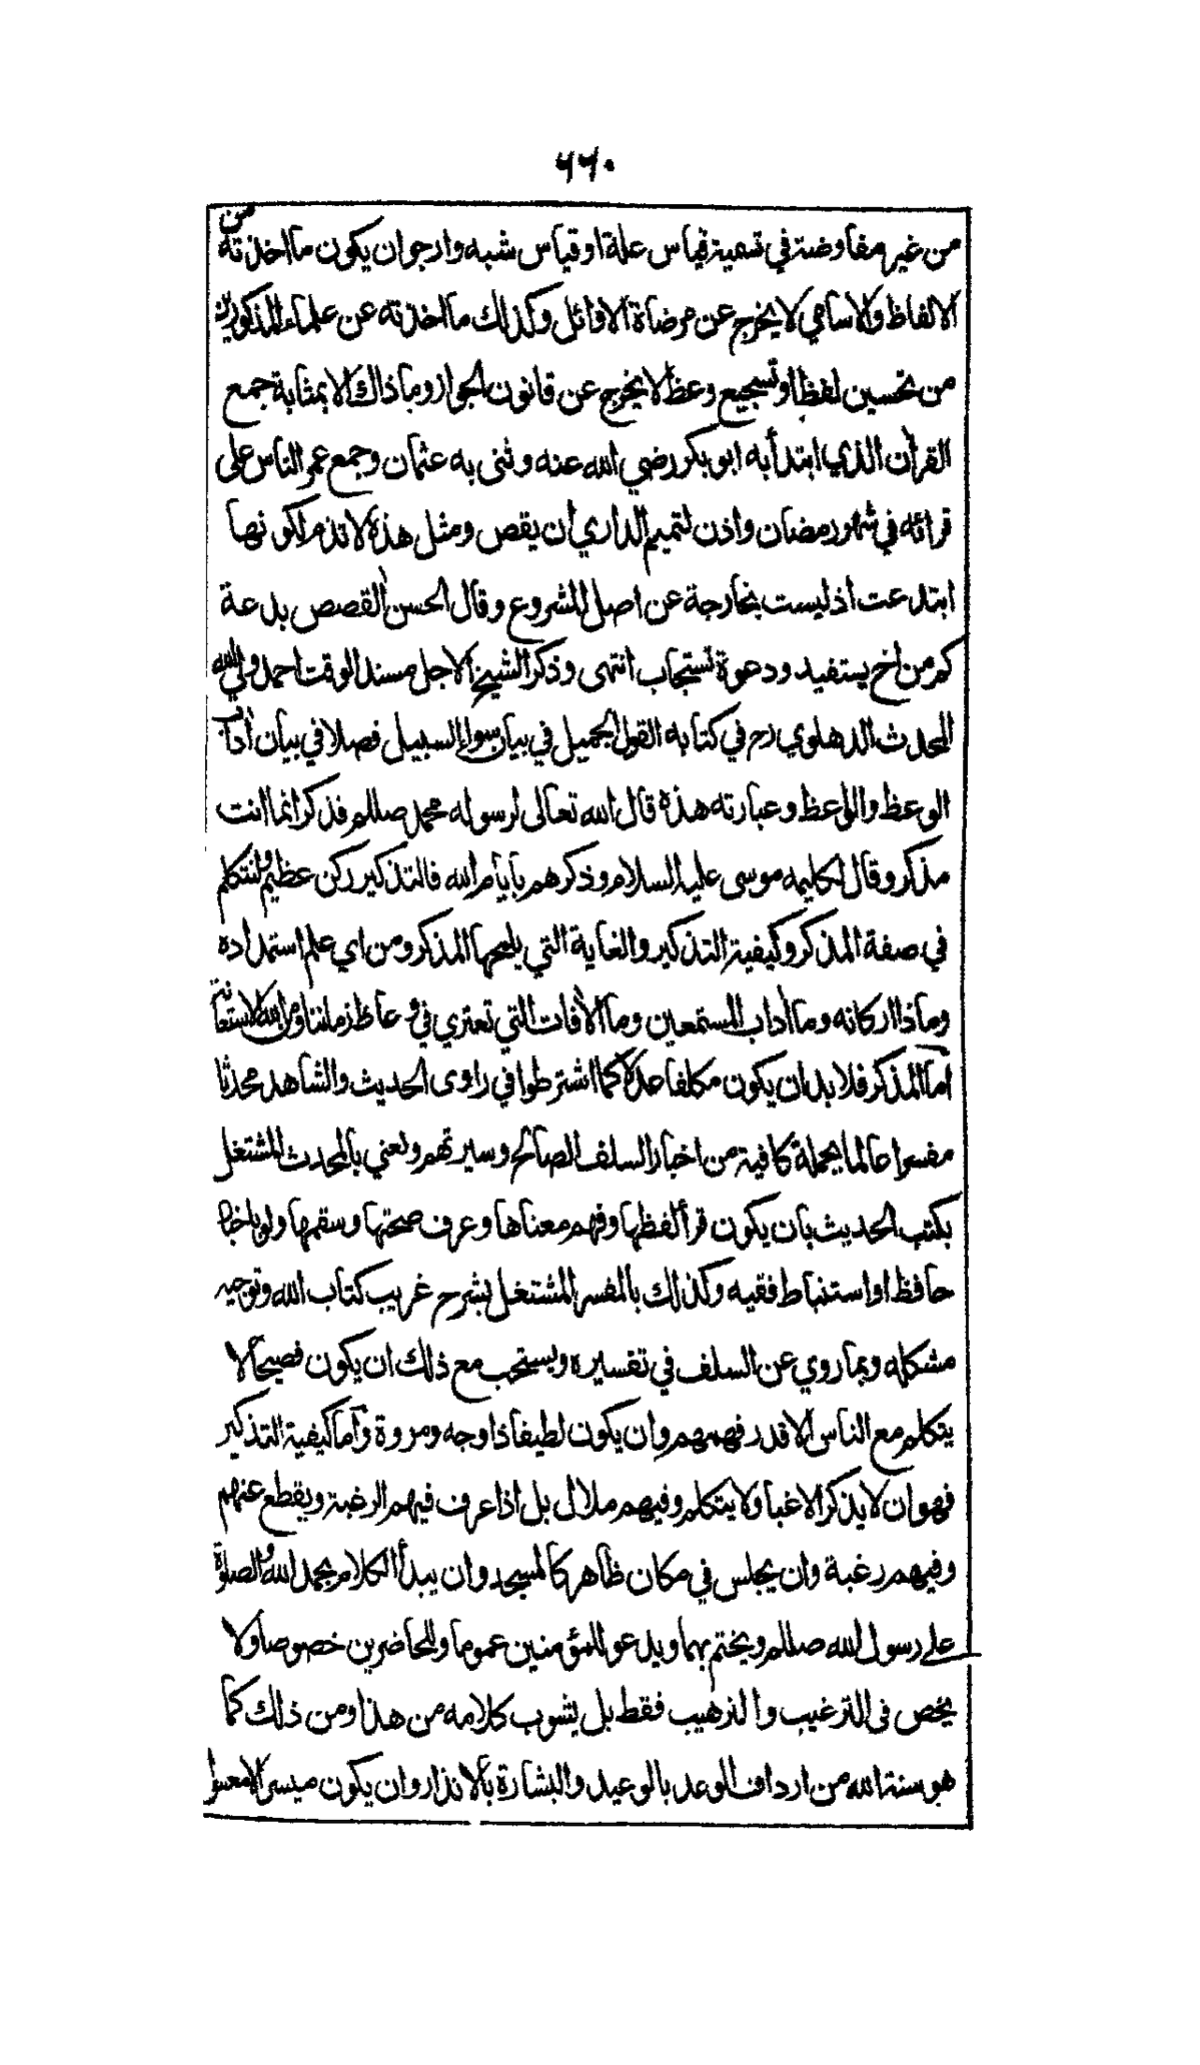 ٦٦٠
من غير مفاوضة في تسمية قياس علة او قياس شبه وارجوان يكون ما اخذته من
الالفاظ والاسامي لا يخرج عن مرضاة الاوائل وكذلك ما اخذته عن علماء المذكورين
من تحسين لفظ او تسجيع وعظ لا يخرج عن قانون الجواز وما ذاك الا بمثابة جمع
القرأن الذي ابتدأ به ابو بكر رضي الله عنه وثنى به عثمان وجمع عمر الناس على
قرائه في شهور رمضان واذن لتميم الداري أن يقص ومثل هذه لا تذم لكونها
ابتدعت اذ ليست بخارجة عن اصل المشروع وقال الحسن القصص بدعة
كم من اخ يستفيد ودعوة تستجاب انتهى وذكر الشيخ الاجل مسند الوقت احمد ولي الله
المحدث الدهلوي رح في كتابه القول الجميل في بيان سواء السبيل فصلا في بيان أداب
الوعظ والواعظ وعبارته هذه قال الله تعالى لرسوله محمد صللم فذكر انما انت
مذكر وقال لكليمه موسى عليه السلام وذكرهم بأيام الله فالتذكير ركن عظيم ولنتكلم
في صفة المذكر وكيفية التذكير والغاية التي يلمحها المذكر ومن اي علم استمداده
وماذا اركانه وما أداب المستمعين وما الأفات التي تعتري في وعاظ زماننا ومن الله الاستعانة
أما المذكر فلا بد ان يكون مكلفا عدلا كما اشترطوا في راوى الحديث والشاهد محدثا
مفسرا عالما بجملة كافية من اخبار السلف الصالح وسيرتهم ونعني بالمحدث المشتغل
بكتب الحديث بان يكون قرأ لفظها وفهم معناها وعرف صحتها وسقمها ولو باخبار
حافظ او استنباط فقيه وكذلك بالمفسر المشتغل بشرح غريب كتاب الله وتوجيه
مشكله وبما روي عن السلف في تفسيره ويستحب مع ذلك ان يكون فصيحا لا
يتكلم مع الناس الا قدر فهمهم وان يكون لطيفا ذا وجه ومروة وأما كيفية التذكير
فهو ان لا يذكر الا غبا ولا يتكلم وفيهم ملال بل اذا عرف فيهم الرغبة ويقطع عنهم
وفيهم رغبة وان يجلس في مكان ظاهر كالمسجد وان يبدأ الكلام بحمد الله والصلوة
على رسول الله صللم ويختم بهما ويدعو للمؤمنين عموما وللحاضرين خصوصا ولا
يخص في الترغيب والترهيب فقط بل يشوب كلامه من هذا ومن ذلك كما
هو سنة الله من ارداف الوعد بالوعيد والبشارة بالانذار وان يكون ميسرا لا معسرا